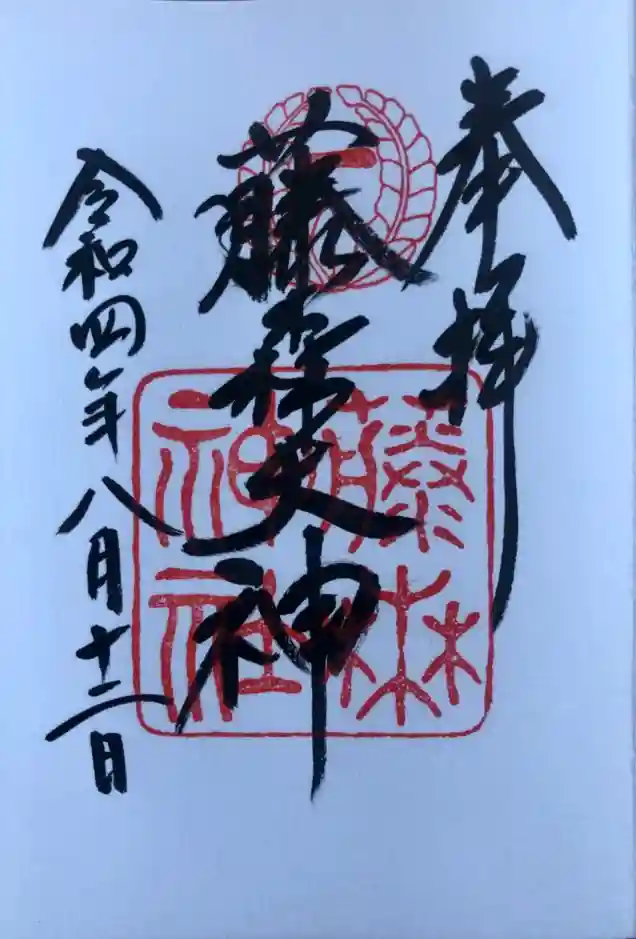 奉拝
藤森天神
令和四年八月十二日
藤森
神社